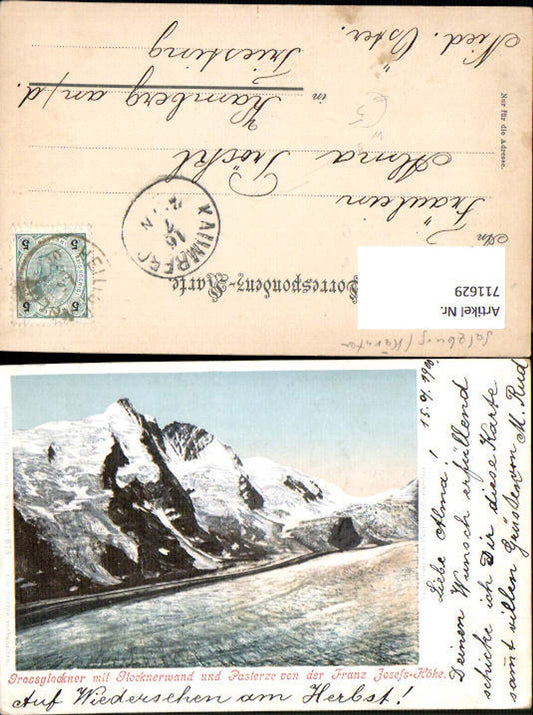 Correspondenz-Karte
An
Fräulein
Alma Tröckl
in Kaumberg an/d.
Triesting
Nied. Öster.
Nur für die Adresse.
KAUMBERG
16
7
5 5
5 5
Artikel Nr.
711629
Salzburg/Kärnten
15. 9. 1900.
Liebe Alma!
Deinen Wunsch erfüllend
schicke ich Dir diese Karte
samt vielen Grüßen von M. Rud
Grossglockner mit Glocknerwand und Pasterze von der Franz Josefs-Höhe.
Auf Wiedersehen am Herbst!